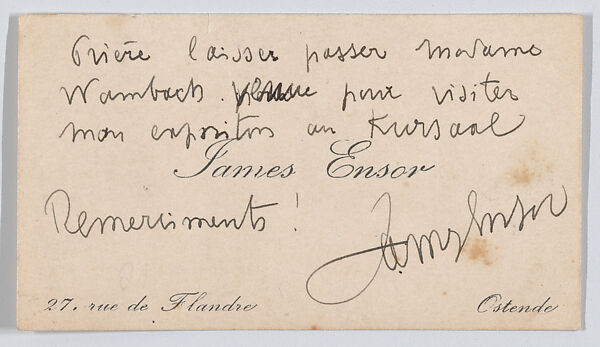 Prière laisser passer Madame
Wambach venue pour visiter
mon expositon au Kursaal
James Ensor
Remerciments !
James Ensor
27. rue de Flandre Ostende